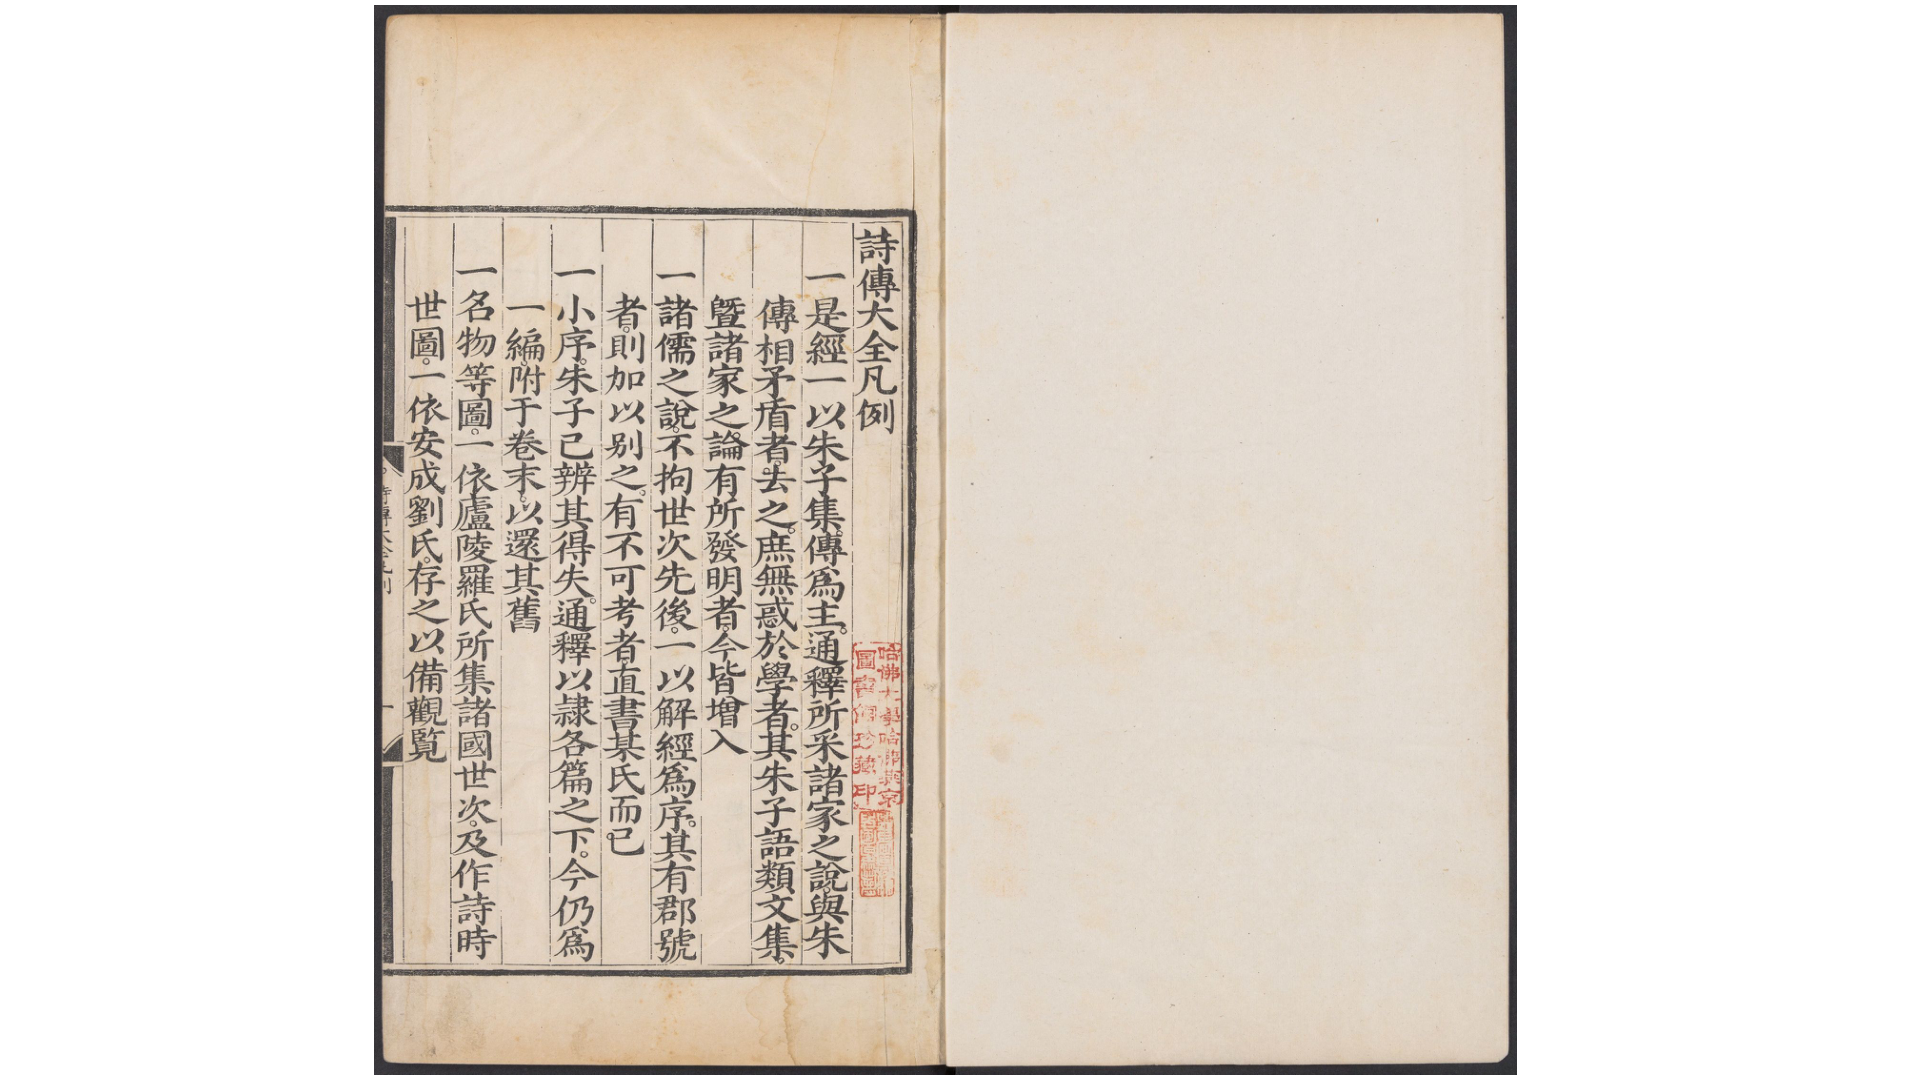 詩傳大全凡例
一是經一以朱子集傳爲主。通釋所采諸家之說。與朱
傳相矛盾者。去之。庶無惑於學者。其朱子語類文集。
曁諸家之論。有所發明者。今皆增入
一諸儒之說。不拘世次先後。一以解經爲序。其有郡號
者。則加以别之。有不可考者直書某氏而已
一小序。朱子已辨其得失。通釋以隷各篇之下。今仍爲
一編。附于卷末。以還其舊
一名物等圖。一依廬陵羅氏所集諸國世次。及作詩時
世圖。一依安成劉氏。存之以備觀覧
哈佛大學哈佛燕京
圖書館珍藏印